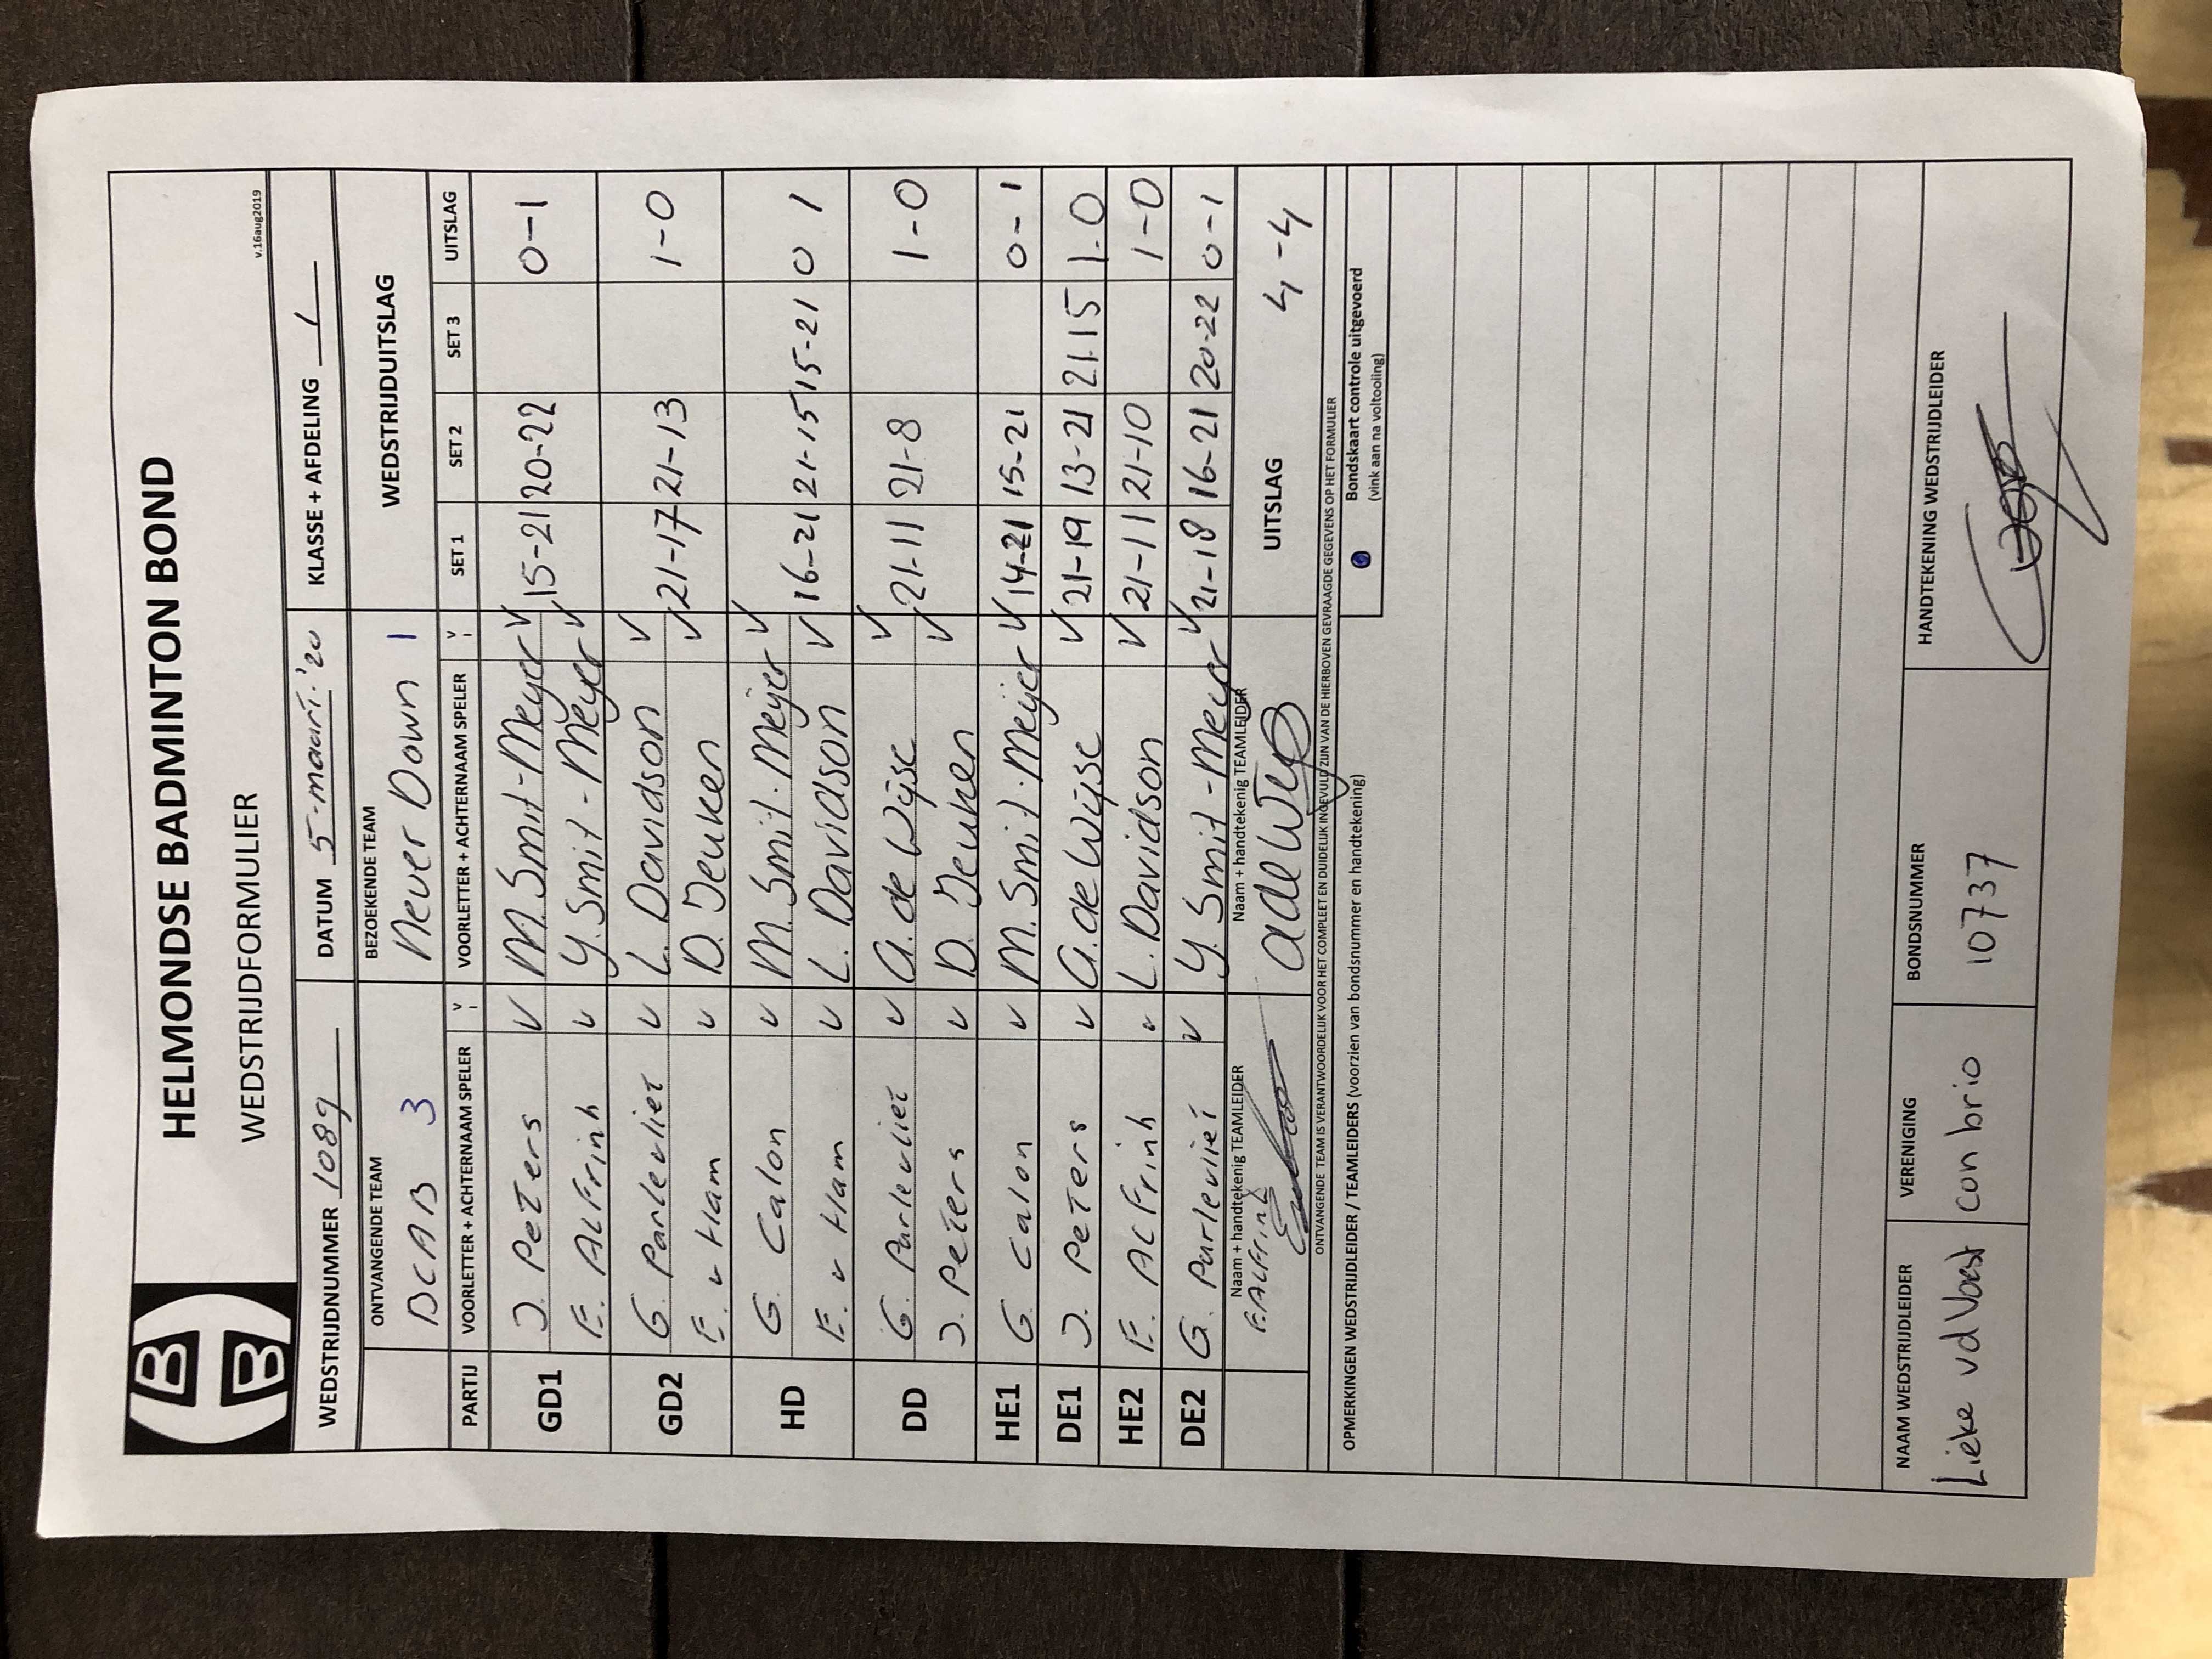 HBB
HELMONDSE BADMINTON BOND
WEDSTRIJDFORMULIER
v.16aug2019
WEDSTRIJDNUMMER 1089 DATUM 5-maart '20 KLASSE + AFDELING 1
ONTVANGENDE TEAM BEZOEKENDE TEAM WEDSTRIJDUITSLAG
BCAB 3 Never Down 1
PARTIJ VOORLETTER + ACHTERNAAM SPELER V VOORLETTER + ACHTERNAAM SPELER V SET 1 SET 2 SET 3 UITSLAG
GD1 J. Peters V M. Smit-Meyer V 15-21 20-22 0-1
E. Alfrink V Y. Smit-Meyer V
GD2 G Parlevliet V L. Davidson V 21-17 21-13 1-0
E. v Ham V D. Jeuken V
HD G. Calon V M. Smit-Meijer V 16-21 21-15 15-21 0 1
E. v Ham V L. Davidson V
DD G. Parlevliet V A. de Wijse V 21-11 21-8 1-0
J. Peters V D. Jeuken V
HE1 G Calon V M. Smit-Meijer V 14-21 15-21 0-1
DE1 J. Peters V A. de Wijse V 21-19 13-21 21-15 1-0
HE2 E. Alfrink V L. Davidson V 21-11 21-10 1-0
DE2 G. Parlevliet V Y. Smit-Meyer V 21-18 16-21 20-22 0-1
Naam + handtekenig TEAMLEIDER Naam + handtekenig TEAMLEIDER UITSLAG 4-4
E. ALFRINK
ONTVANGENDE TEAM IS VERANTWOORDELIJK VOOR HET COMPLEET EN DUIDELIJK INGEVULD ZIJN VAN DE HIERBOVEN GEVRAAGDE GEGEVENS OP HET FORMULIER
OPMERKINGEN WEDSTRIJDLEIDER / TEAMLEIDERS (voorzien van bondsnummer en handtekening)
Bondskaart controle uitgevoerd
(vink aan na voltooiing)
NAAM WEDSTRIJDLEIDER VERENIGING BONDSNUMMER HANDTEKENING WEDSTRIJDLEIDER
Lieke vd Vorst con brio 10737